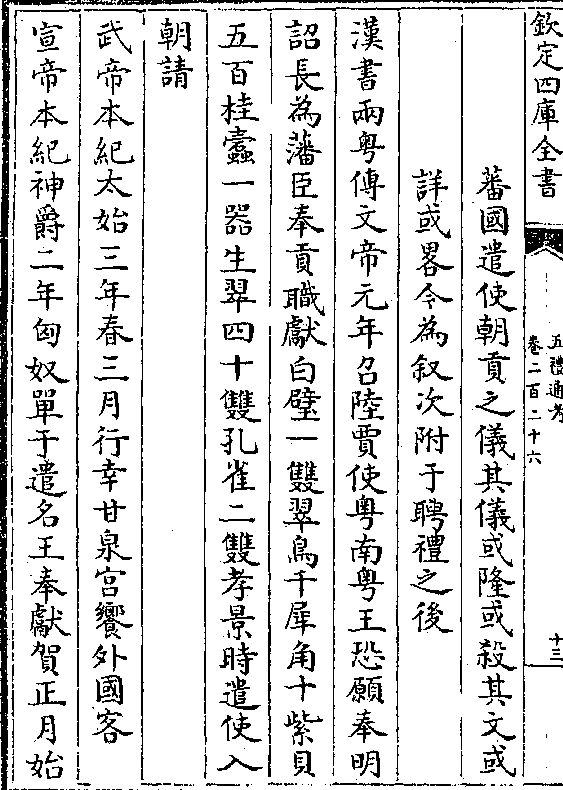 欽定四庫全書
五禮通考
卷二百二十六
十三
蕃國遣使朝貢之儀其儀或隆或殺其文或
詳或畧今為叙次附于聘禮之後
漢書兩粤傳文帝元年召陸賈使粤南粤王恐願奉明
詔長為藩臣奉貢職獻白璧一雙翠鳥千犀角十紫貝
五百桂蠧一器生翠四十雙孔雀二雙孝景時遣使入
朝請
武帝本紀太始三年春三月行幸甘泉宫饗外國客
宣帝本紀神爵二年匈奴單于遣名王奉獻賀正月始